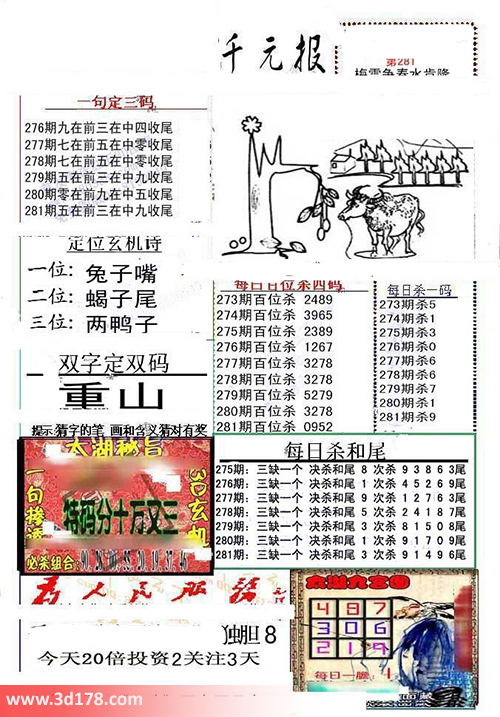 元报
第281
一句定三码
276期九在前三在中四收尾
277期七在前五在中零收尾
278期七在前五在中零收尾
279期五在前三在中九收尾
280期零在前九在中五收尾
281期五在前三在中九收尾
定位玄机诗
一位：兔子嘴
二位：蝎子尾
三位：两鸭子
每日百位杀四码
273期百位杀 2489
274期百位杀 3965
275期百位杀 2389
276期百位杀 1267
277期百位杀 3278
278期百位杀 3278
279期百位杀 5279
280期百位杀 3278
281期百位杀 0952
每日杀一码
273期杀5
274期杀1
275期杀3
276期杀0
277期杀6
278期杀6
279期杀7
280期杀1
281期杀9
双字定双码
重山
提示:猜字的笔 画和含义猜对有奖
太湖秘旨
特码分十万又三
必杀组合:
每日杀和尾
275期: 三缺一个 决杀和尾 8 次杀 9 3 8 6 3尾
276期: 三缺一个 决杀和尾 1 次杀 4 5 2 6 9尾
277期: 三缺一个 决杀和尾 9 次杀 1 2 7 6 3尾
278期: 三缺一个 决杀和尾 5 次杀 2 4 1 8 7尾
279期: 三缺一个 决杀和尾 3 次杀 8 1 5 0 8尾
280期: 三缺一个 决杀和尾 1 次杀 9 1 7 0 9尾
281期: 三缺一个 决杀和尾 3 次杀 9 1 4 9 6尾
为人民服务
独胆 8
今天20倍投资2关注3天
太湖九宫图
4 9 7
3 0 6
2 1 9
每日一胆 1
www.3d178.com